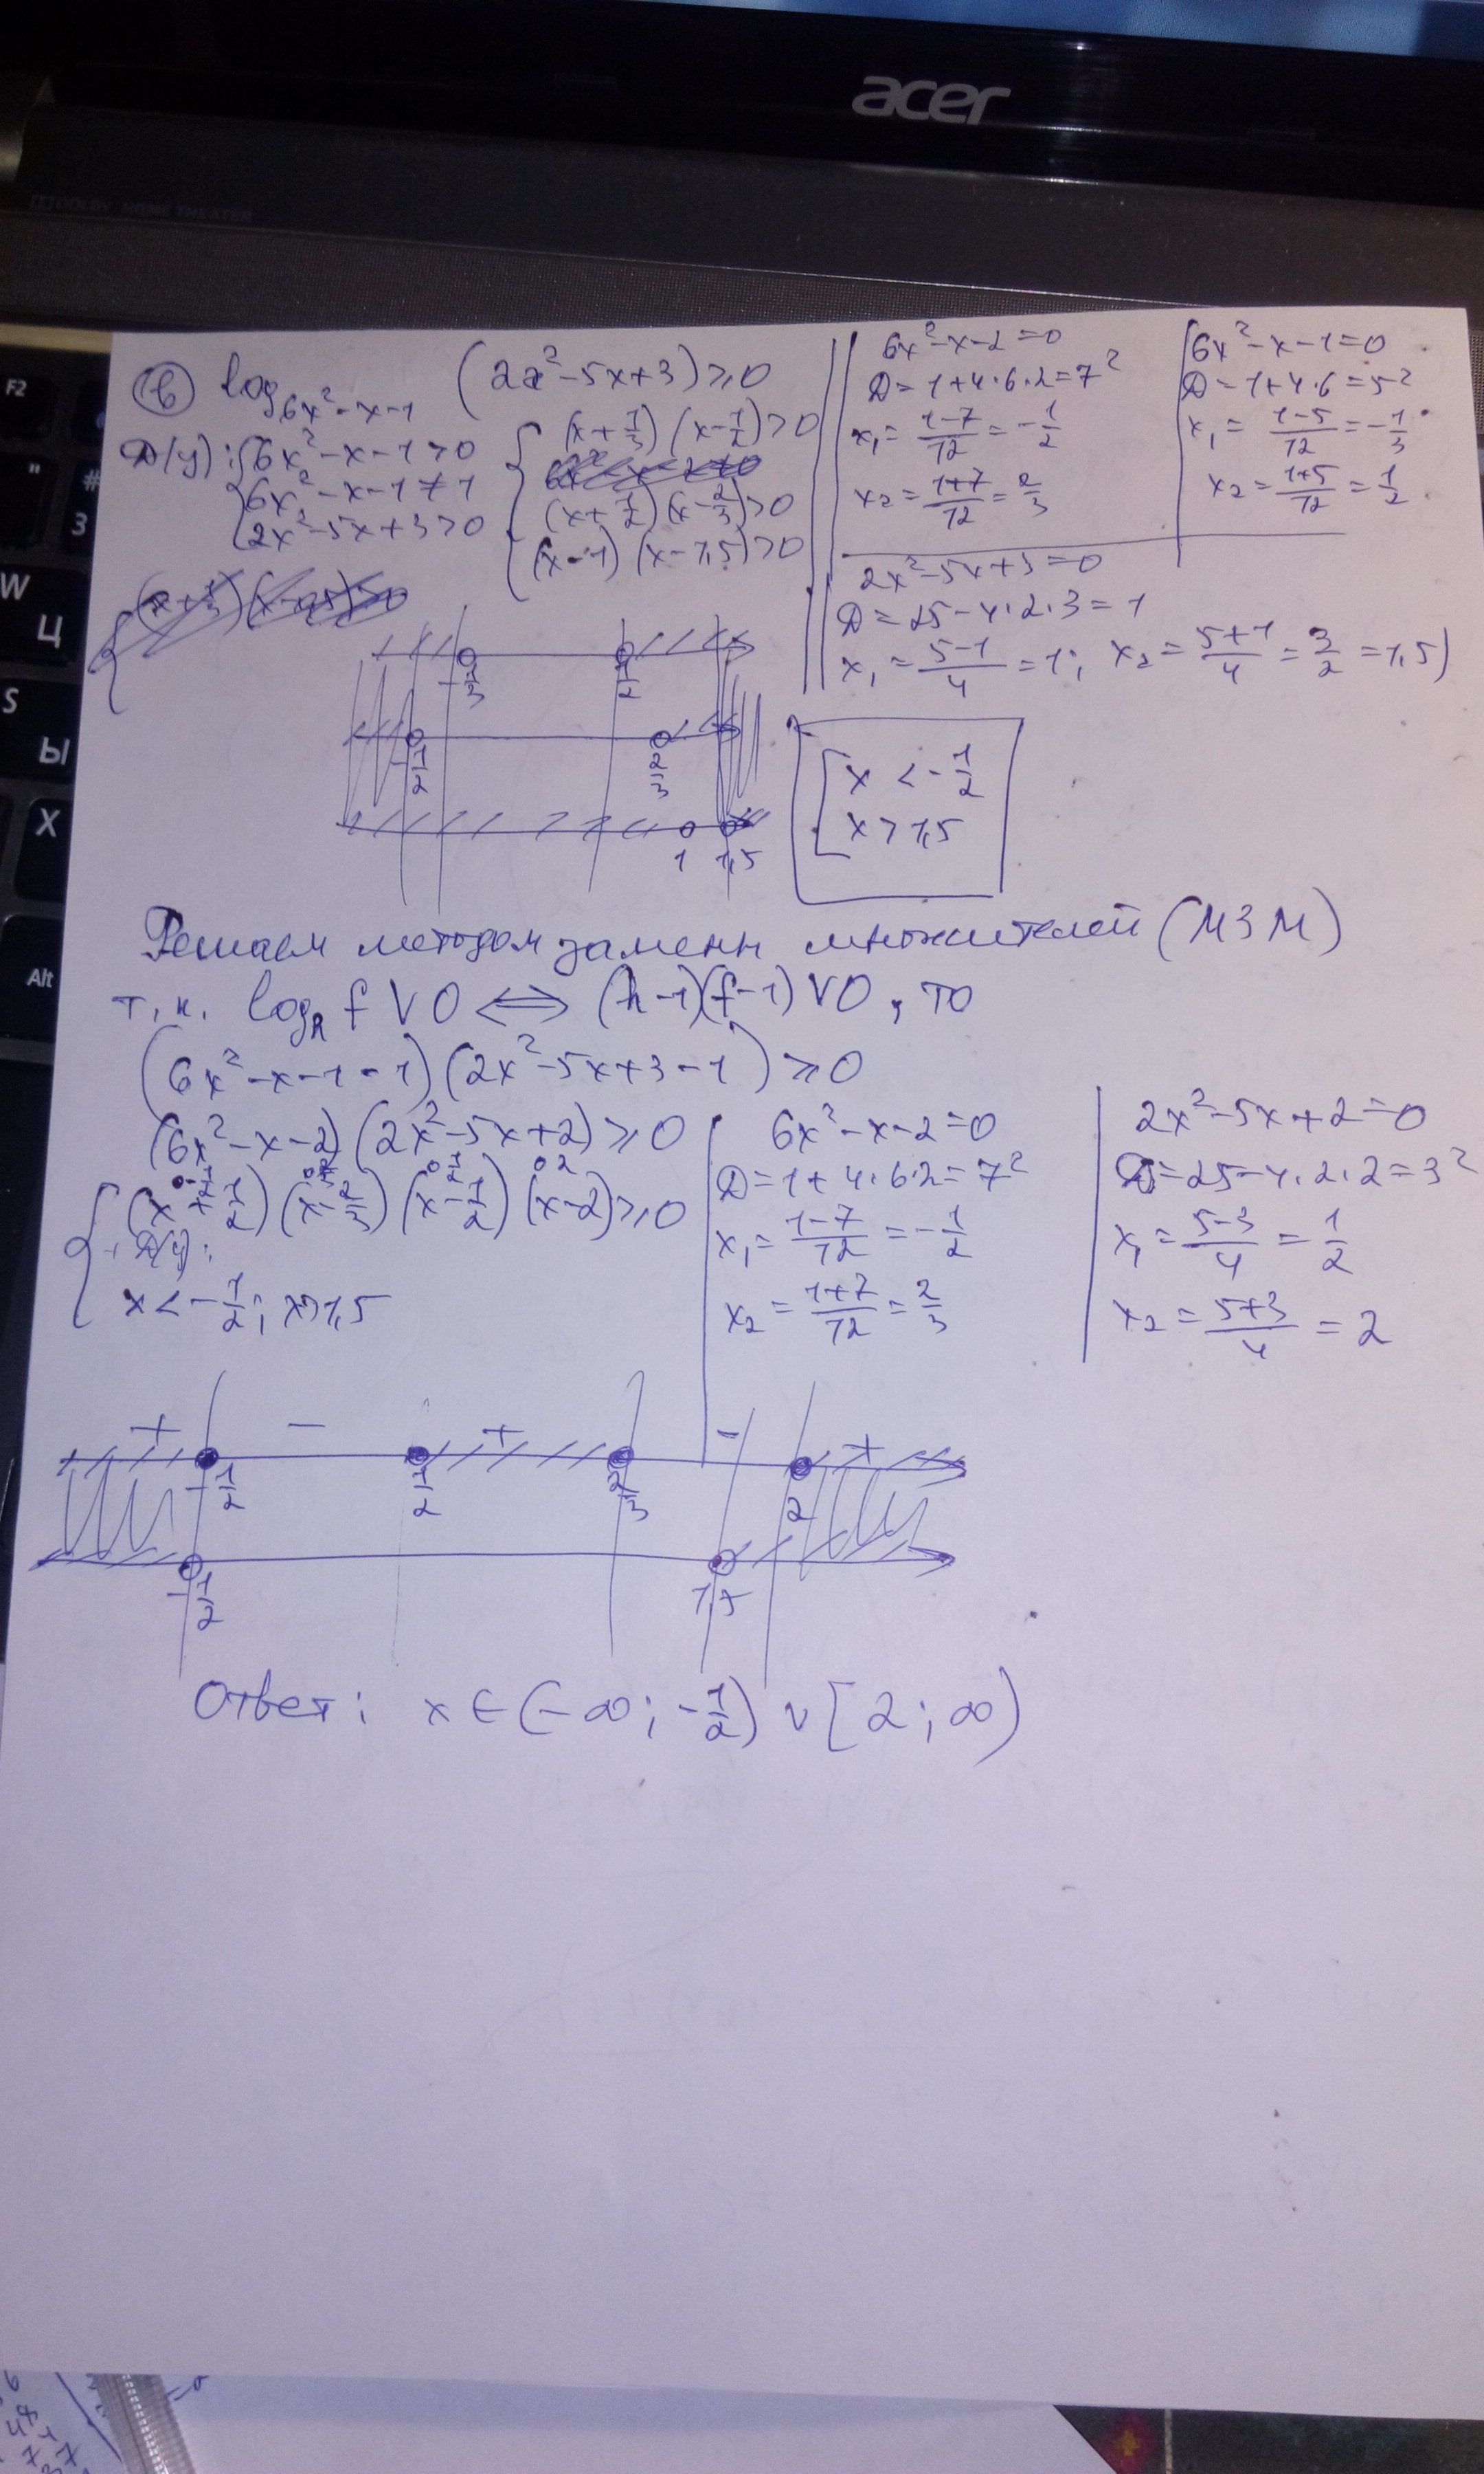 acer
DOLBY HOME THEATER
F2
"
#
3
W
Ц
S
Ы
X
Alt
в) log_{6x²-x-1} (2x²-5x+3) ≥ 0
D(y): { 6x²-x-1>0
6x²-x-1≠1
2x²-5x+3>0
{ (x+1/3)(x-1/2)>0
(x+1/2)(x-2/3)>0
(x-1)(x-1,5)>0
6x²-x-2=0
D=1+4·6·2=7²
x₁=(1-7)/12=-1/2
x₂=(1+7)/12=2/3
6x²-x-1=0
D=1+4·6=5²
x₁=(1-5)/12=-1/3
x₂=(1+5)/12=1/2
2x²-5x+3=0
D=25-4·2·3=1
x₁=(5-1)/4=1; x₂=(5+1)/4=3/2=1,5)
-1/3 1/2
-1/2 2/3
1 1,5
[ x<-1/2
x>1,5
Решаем методом замены множителей (МЗМ)
т.к. log_h f V 0 ⟺ (h-1)(f-1) V 0, то
(6x²-x-1-1)(2x²-5x+3-1) ≥ 0
(6x²-x-2)(2x²-5x+2) ≥ 0
{ (x+1/2)(x-2/3)(x-1/2)(x-2) ≥ 0
D(y):
x<-1/2; x>1,5
6x²-x-2=0
D=1+4·6·2=7²
x₁=(1-7)/12=-1/2
x₂=(1+7)/12=2/3
2x²-5x+2=0
D=25-4·2·2=3²
x₁=(5-3)/4=1/2
x₂=(5+3)/4=2
+ - + - +
-1/2 1/2 2/3 2
-1/2 1,5
Ответ: x∈(-∞;-1/2)∪[2;∞)